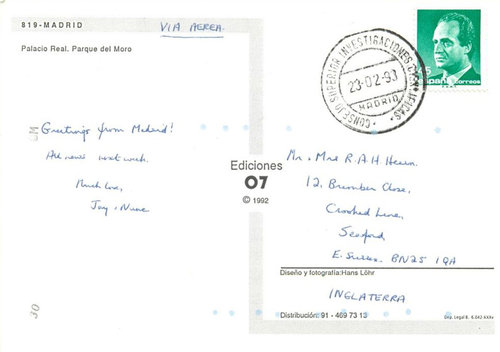 819-MADRID
VIA AEREA
Palacio Real. Parque del Moro
CONSEJO SUPERIOR INVESTIGACIONES CIENTIFICAS
23-02-93
MADRID
España Correos
Greetings from Madrid!
All news next week.
Much love,
Ediciones
07
© 1992
Mr. Mrs R.A.H
12,
Close,
Crooked Lane,
Seaford
E. Sussex. BN25 1QA
INGLATERRA
Diseño y fotografía: Hans Löhr
Distribución: 91 - 469 73 13
30